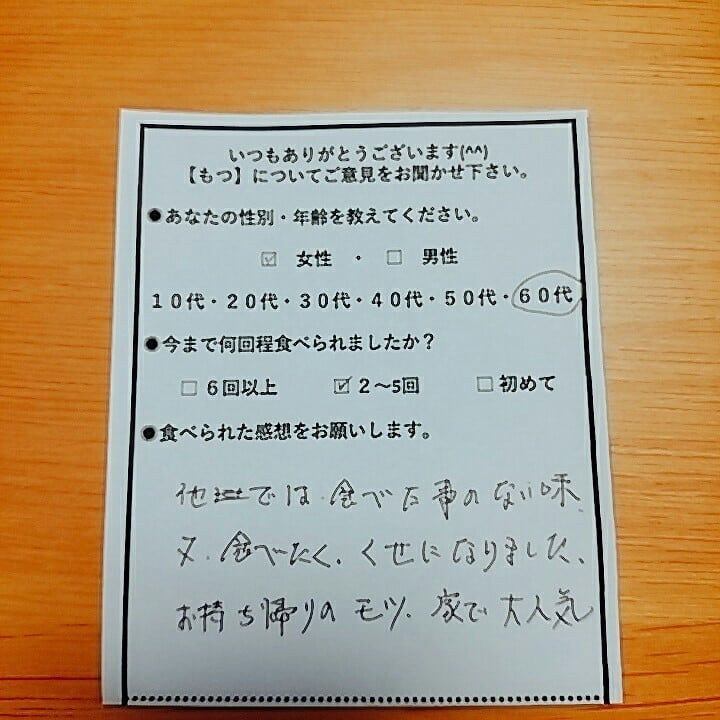 いつもありがとうございます(^^)
【もつ】についてご意見をお聞かせ下さい。
●あなたの性別・年齢を教えてください。
☑ 女性 ・ □ 男性
10代・20代・30代・40代・50代・60代
●今まで何回程食べられましたか？
□ 6回以上 ☑ 2～5回 □ 初めて
●食べられた感想をお願いします。
他では、食べた事のない味、
又、食べたく、くせになりました、
お持ち帰りのモツ、家で大人気